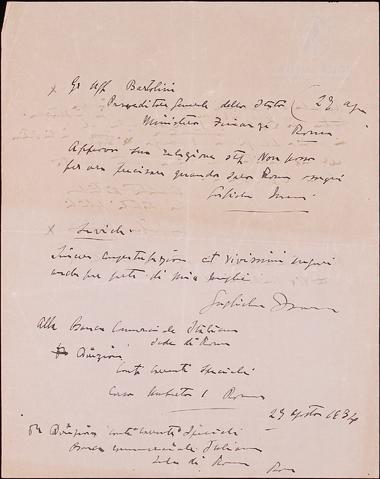 x Gr Uff Bartolini
Provveditore Generale dello Stato ( 29 ago
Ministero Finanze
Roma
Approvo sua relazione stop. Non posso
per ora precisare quando sarò Roma
Guglielmo
x
Sincere congratulazioni et vivissimi auguri
anche per parte di mia moglie
Guglielmo
Alla Banca Commerciale Italiana
Sede di Roma
Divisione
Conti Correnti Speciali
Corso Umberto I Roma
29 agosto 1934
Divisione Conti Correnti Speciali
Banca Commerciale Italiana
Sede di Roma
Roma